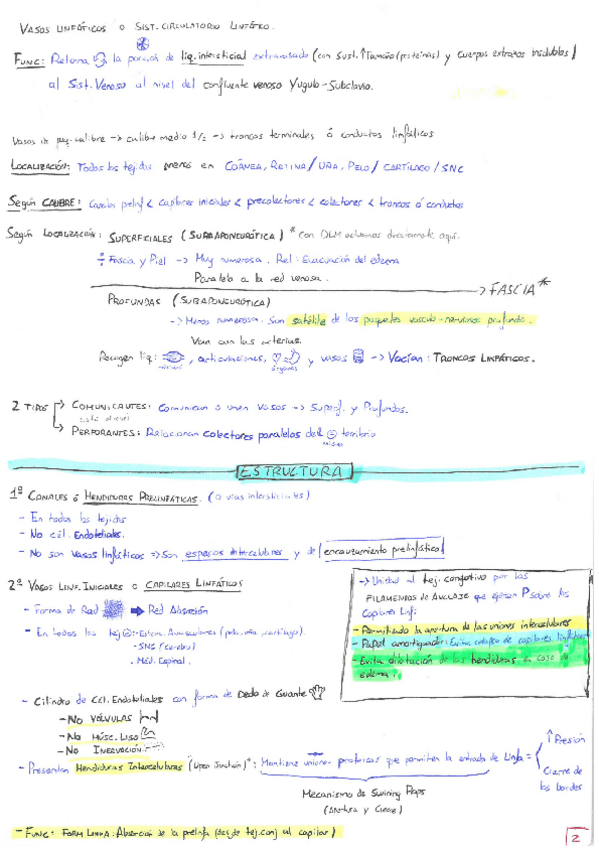 VASOS LINFÁTICOS O SIST. CIRCULATORIO LINFÁTICO.
FUNC: Retorna la porción de liq. intersticial extravasado (con Sust. ↑Tamaño (proteinas) y Cuerpos extraños insolubles)
al Sist. Venoso al nivel del confluente venoso Yugulo-Subclavio.
Vasos de peq. calibre → calibre medio 1/2 → troncos terminales ó conductos linfáticos
LOCALIZACIÓN: Todos los tejidos menos en CÓRNEA, RETINA/ UÑA, PELO/ CARTÍLAGO/ SNC
SEGÚN CALIBRE: Canales prelinf < capilares iniciales < precolectores < colectores < troncos ó conductos
SEGÚN LOCALIZACIÓN: SUPERFICIALES (SUPRAAPONEURÓTICA)* Con DLM actuamos directamente aquí.
Fascia y Piel → Muy numerosa. Rel: Evacuación del edema
Paralela a la red venosa.
→ FASCIA*
PROFUNDAS (SUBAPONEURÓTICA)
→ Menos numerosa. Son satélite de los paquetes vasculo-nerviosos profundos.
Van con las arterias.
Recogen liq: , articulaciones, y vasos → Vacían: TRONCOS LINFÁTICOS.
músculos órganos
2 TIPOS → COMUNICANTES: Comunican o unen vasos → Superf. y Profundos.
→ PERFORANTES: Relacionan colectores paralelos del territorio
ESTRUCTURA
1º CANALES Ó HENDIDURAS PRELINFÁTICAS. (o vías intersticiales)
- En todos los tejidos
- No cél. Endoteliales.
- No son vasos linfáticos ⇒ Son espacios intercelulares y de encauzamiento prelinfático
2º VASOS LINF. INICIALES O CAPILARES LINFÁTICOS
- Forma de Red → Red Absorción
- En todos los tej : Estruc. Avasculares (pelo, uña, cartílago).
- SNC (cerebro)
- Méd. Espinal.
→ Unidad al tej. conjuntivo por los
FILAMENTOS DE ANCLAJE que ejercen P sobre los
Capilares Linf:
- Permitiendo la apertura de las uniones intercelulares
- Papel amortiguador: Evita colapso de capilares linfáticos
- Evita dilatación de las hendiduras en caso de
edema.
- Cilindro de Cél. Endoteliales con forma de Dedo de Guante
- No VÁLVULAS
- No MÚSC. LISO
- No INERVACIÓN
- Presentan Hendiduras Intercelulares (Open Junction)*: Mantiene uniones proteicas que permiten la entrada de Linfa =
↑ Presión
Cierre de
los bordes
Mecanismo de Swining Flaps
(Apertura y Cierre)
- FUNC: FORM LINFA. Absorción de la prelinfa (desde tej. conj al capilar)
2